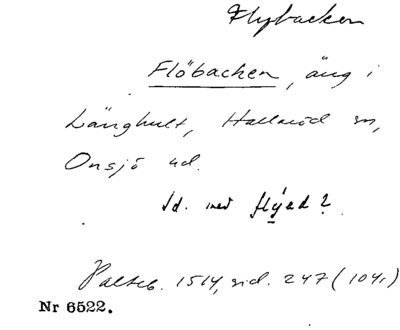 Flybacken
Flöbacken, äng i
Långhult, Hallaröd sn,
Onsjö hd.
Id. med flyed?
Palteb. 1514, sid. 247 (104r)
Nr 6522.